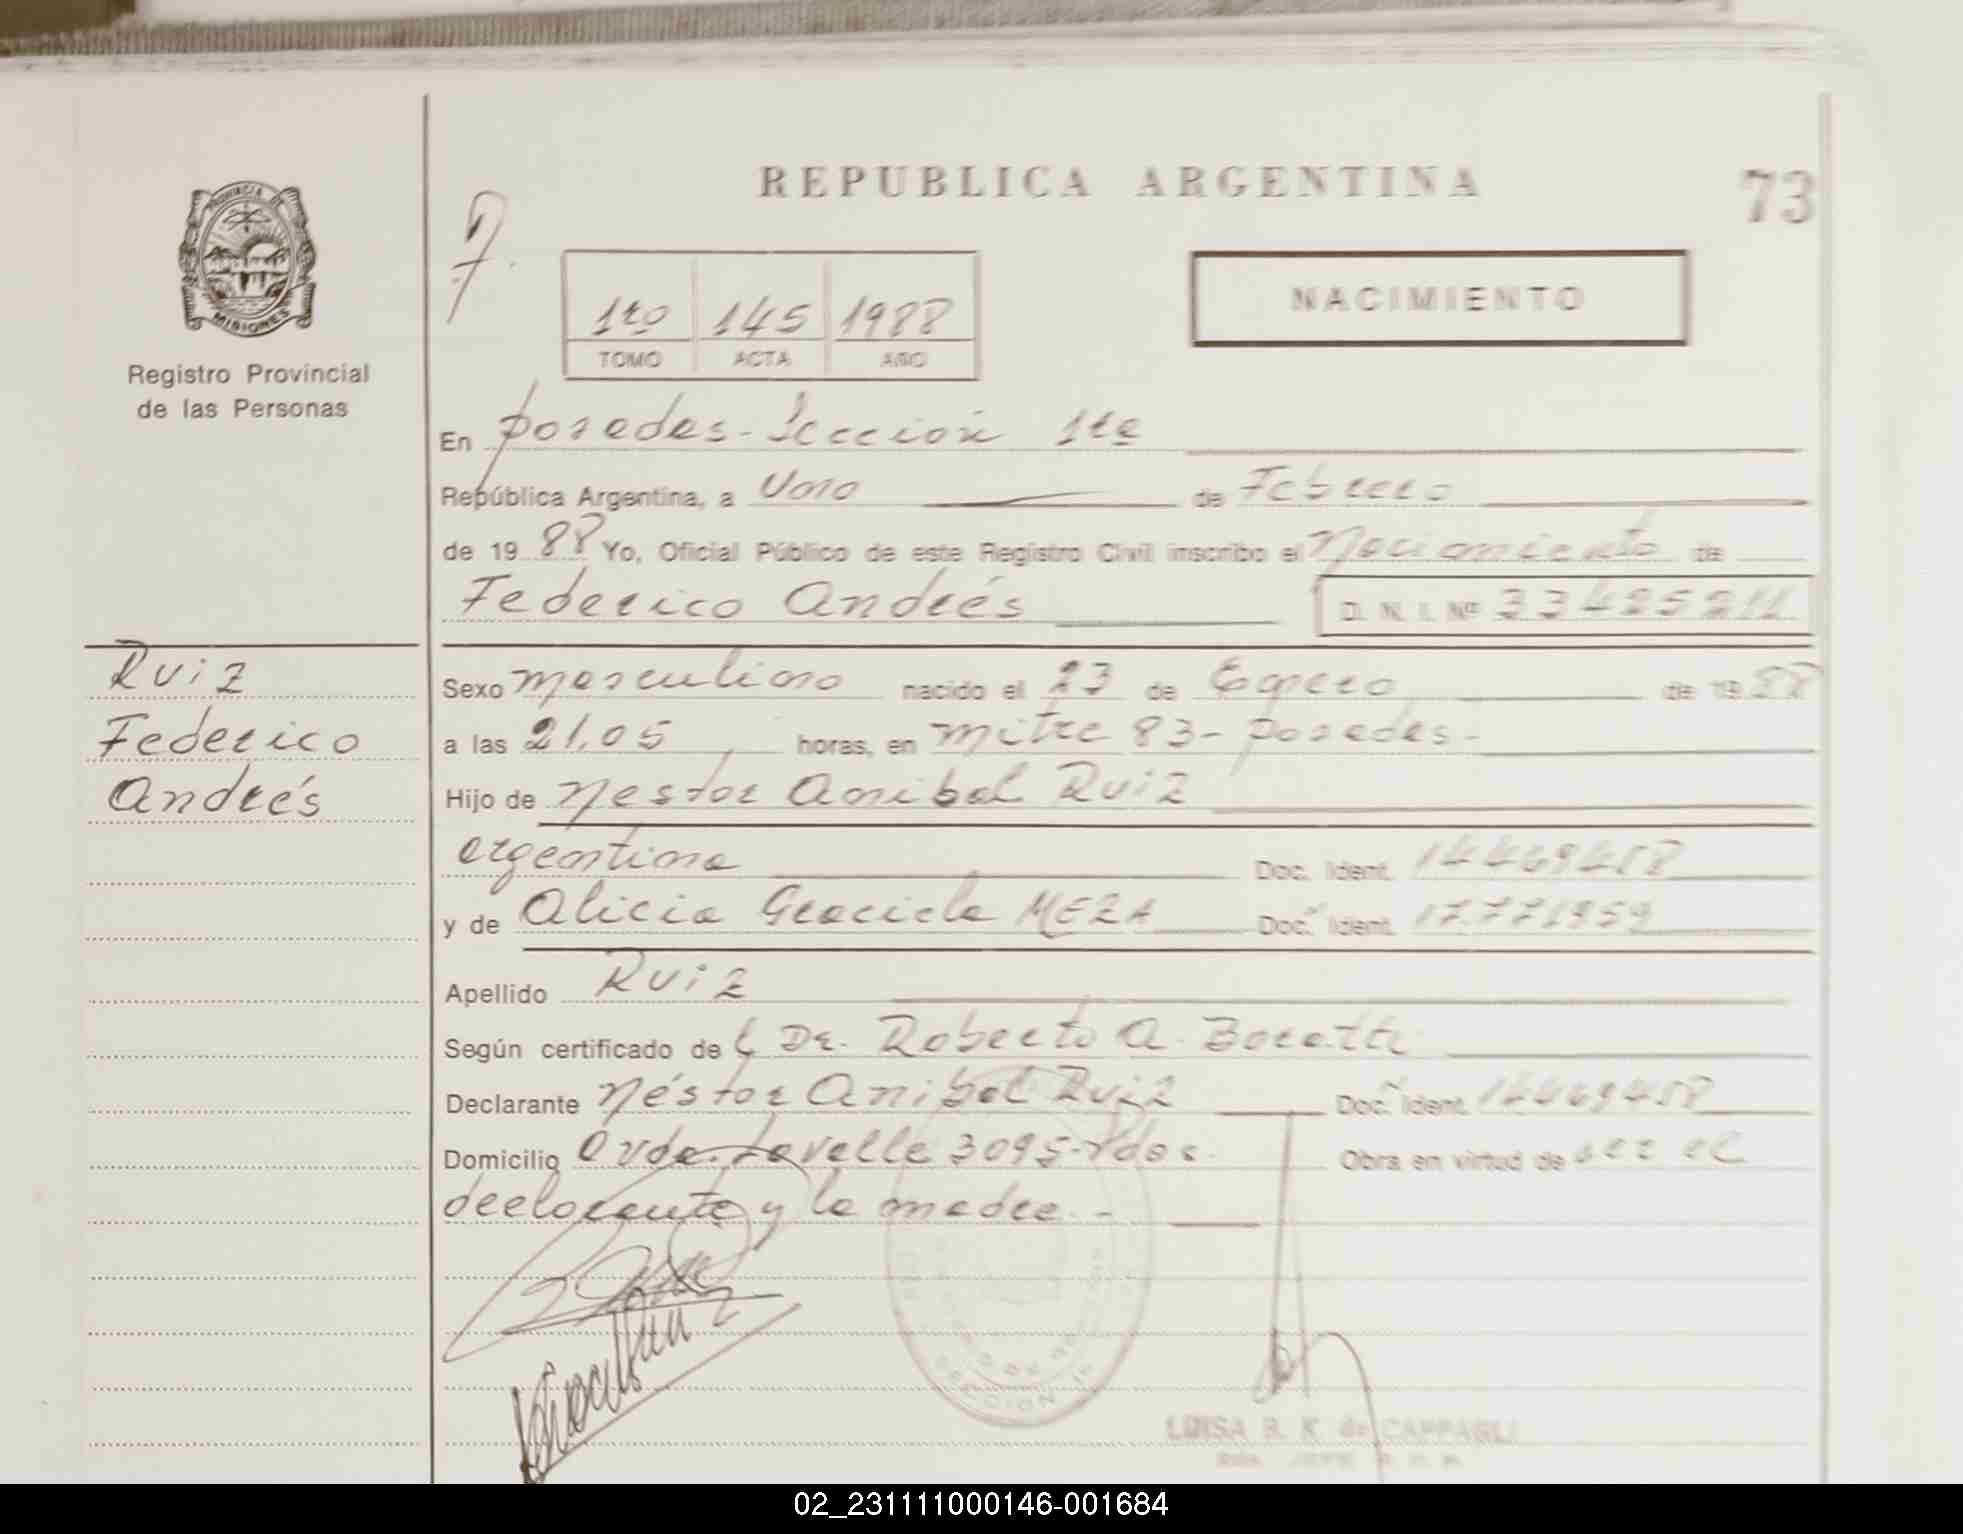 REPUBLICA ARGENTINA
73
PROVINCIA DE
MISIONES
Registro Provincial
de las Personas
1ro 145 1988
TOMO ACTA AÑO
NACIMIENTO
En Posadas - Sección 1ra
República Argentina, a Uno de Febrero
de 1988 Yo, Oficial Público de este Registro Civil inscribo el Nacimiento de
Federico Andrés D. N. I. Nº 33425211
Ruiz
Federico
Andrés
Sexo masculino nacido el 23 de Enero de 1988
a las 21,05 horas, en mitre 83 - posadas -
Hijo de Nestor Anibal Ruiz
argentina Doc. Ident. 14469458
y de Alicia Graciela MEZA Doc. Ident. 17.771959
Apellido Ruiz
Según certificado de Dr. Roberto A.
Declarante Néstor Anibal Ruiz Doc. Ident. 14469458
Domicilio Avda. Lavalle 3095 - Pdas. Obra en virtud de ser el
declarante y la madre. -
SECCION 1ª
LUISA R. K. de CAPPAGLI
02_231111000146-001684